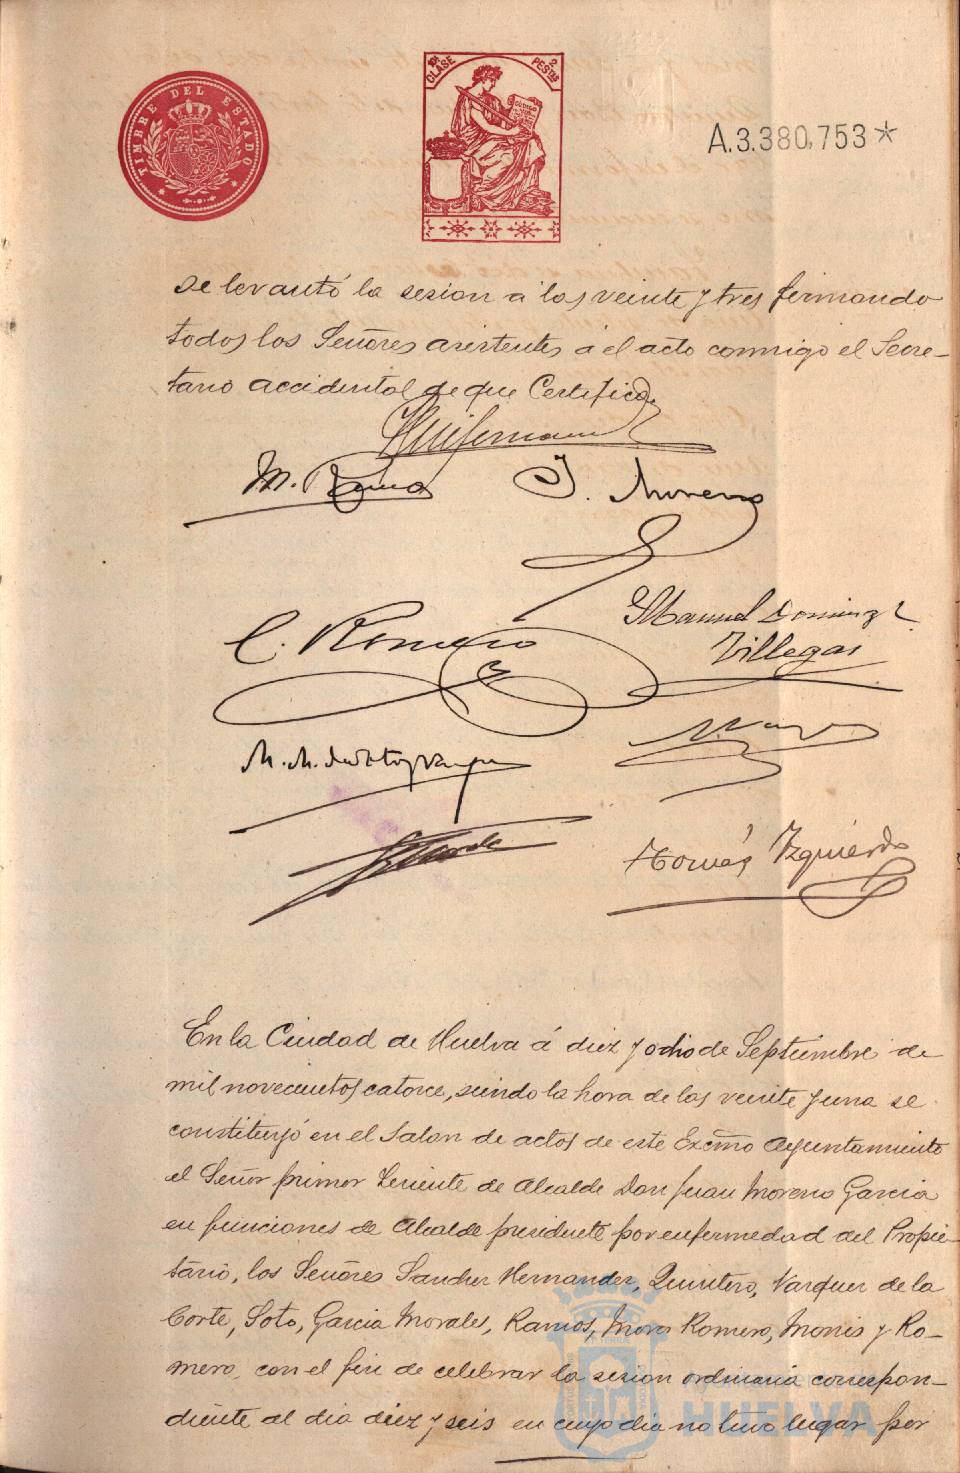 TIMBRE DEL ESTADO
10ª CLASE 2 PESETAS
CODIGO
A.3.380,753*
se levantó la sesion á las veinte y tres firmando
todos los Señores asistentes á el acto conmigo el Secre-
tario accidental de que Certifico.
J. Moreno
C. Romero
Manuel Domingz
Villegas
Tomás Izquierdo
En la Ciudad de Huelva á diez y ocho de Septiembre de
mil novecientos catorce, siendo la hora de las veinte y una se
constituyó en el Salon de actos de este Excmo Ayuntamiento
el Señor primer Teniente de Alcalde Don Juan Moreno Garcia
en funciones de Alcalde presidente por enfermedad del Propie-
tario, los Señores Sanchez Hernandez, Quintero, Vazquez de la
Corte, Soto, Garcia Morales, Ramos, Mora Romero, Monis y Ro-
mero, con el fin de celebrar la sesion ordinaria correspon-
diente al dia diez y seis en cuyo dia no tuvo lugar por
HUELVA